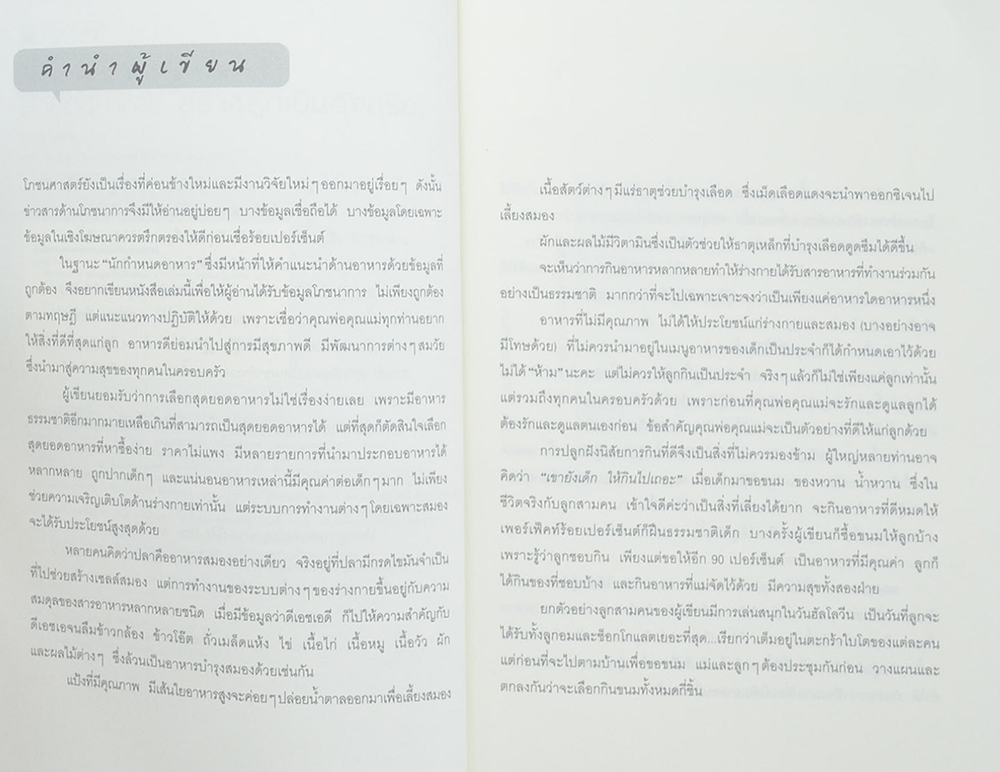 คำนำผู้เขียน
โภชนศาสตร์ยังเป็นเรื่องที่ค่อนข้างใหม่และมีงานวิจัยใหม่ๆ ออกมาอยู่เรื่อยๆ ดังนั้น
ข่าวสารด้านโภชนาการจึงมีให้อ่านอยู่บ่อยๆ บางข้อมูลเชื่อถือได้ บางข้อมูลโดยเฉพาะ
ข้อมูลในเชิงโฆษณาควรตรึกตรองให้ดีก่อนเชื่อร้อยเปอร์เซ็นต์
ในฐานะ "นักกำหนดอาหาร" ซึ่งมีหน้าที่ให้คำแนะนำด้านอาหารด้วยข้อมูลที่
ถูกต้อง จึงอยากเขียนหนังสือเล่มนี้เพื่อให้ผู้อ่านได้รับข้อมูลโภชนาการ ไม่เพียงถูกต้อง
ตามทฤษฎี แต่แนะแนวทางปฏิบัติให้ด้วย เพราะเชื่อว่าคุณพ่อคุณแม่ทุกท่านอยาก
ให้สิ่งที่ดีที่สุดแก่ลูก อาหารดีย่อมนำไปสู่การมีสุขภาพดี มีพัฒนาการต่างๆ สมวัย
ซึ่งนำมาสู่ความสุขของทุกคนในครอบครัว
ผู้เขียนยอมรับว่าการเลือกสุดยอดอาหารไม่ใช่เรื่องง่ายเลย เพราะมีอาหาร
ธรรมชาติอีกมากมายเหลือเกินที่สามารถเป็นสุดยอดอาหารได้ แต่ที่สุดก็ตัดสินใจเลือก
สุดยอดอาหารที่หาซื้อง่าย ราคาไม่แพง มีหลายรายการที่นำมาประกอบอาหารได้
หลากหลาย ถูกปากเด็กๆ และแน่นอนอาหารเหล่านี้มีคุณค่าต่อเด็กๆ มาก ไม่เพียง
ช่วยความเจริญเติบโตด้านร่างกายเท่านั้น แต่ระบบการทำงานต่างๆ โดยเฉพาะสมอง
จะได้รับประโยชน์สูงสุดด้วย
หลายคนคิดว่าปลาคืออาหารสมองอย่างเดียว จริงอยู่ที่ปลามีกรดไขมันจำเป็น
ที่ไปช่วยสร้างเซลล์สมอง แต่การทำงานของระบบต่างๆ ของร่างกายขึ้นอยู่กับความ
สมดุลของสารอาหารหลากหลายชนิด เมื่อมีข้อมูลว่าดีเอชเอดี ก็ไปให้ความสำคัญกับ
ดีเอชเอจนลืมข้าวกล้อง ข้าวโอ๊ต ถั่วเมล็ดแห้ง ไข่ เนื้อไก่ เนื้อหมู เนื้อวัว ผัก
และผลไม้ต่างๆ ซึ่งล้วนเป็นอาหารบำรุงสมองด้วยเช่นกัน
แป้งที่มีคุณภาพ มีเส้นใยอาหารสูงจะค่อยๆ ปล่อยน้ำตาลออกมาเพื่อเลี้ยงสมอง
เนื้อสัตว์ต่างๆ มีแร่ธาตุช่วยบำรุงเลือด ซึ่งเม็ดเลือดแดงจะนำพาออกซิเจนไป
เลี้ยงสมอง
ผักและผลไม้มีวิตามินซึ่งเป็นตัวช่วยให้ธาตุเหล็กที่บำรุงเลือดดูดซึมได้ดีขึ้น
จะเห็นว่าการกินอาหารหลากหลายทำให้ร่างกายได้รับสารอาหารที่ทำงานร่วมกัน
อย่างเป็นธรรมชาติ มากกว่าที่จะไปเฉพาะเจาะจงว่าเป็นเพียงแค่อาหารใดอาหารหนึ่ง
อาหารที่ไม่มีคุณภาพ ไม่ได้ให้ประโยชน์แก่ร่างกายและสมอง (บางอย่างอาจ
มีโทษด้วย) ที่ไม่ควรนำมาอยู่ในเมนูอาหารของเด็กเป็นประจำก็ได้กำหนดเอาไว้ด้วย
ไม่ได้ "ห้าม" นะคะ แต่ไม่ควรให้ลูกกินเป็นประจำ จริงๆ แล้วก็ไม่ใช่เพียงแค่ลูกเท่านั้น
แต่รวมถึงทุกคนในครอบครัวด้วย เพราะก่อนที่คุณพ่อคุณแม่จะรักและดูแลลูกได้
ต้องรักและดูแลตนเองก่อน ข้อสำคัญคุณพ่อคุณแม่จะเป็นตัวอย่างที่ดีให้แก่ลูกด้วย
การปลูกฝังนิสัยการกินที่ดีจึงเป็นสิ่งที่ไม่ควรมองข้าม ผู้ใหญ่หลายท่านอาจ
คิดว่า "เขายังเด็ก ให้กินไปเถอะ" เมื่อเด็กมาขอขนม ของหวาน น้ำหวาน ซึ่งใน
ชีวิตจริงกับลูกสามคน เข้าใจดีค่ะว่าเป็นสิ่งที่เลี่ยงได้ยาก จะกินอาหารที่ดีหมดให้
เพอร์เฟ็คท์ร้อยเปอร์เซ็นต์ก็ฝืนธรรมชาติเด็ก บางครั้งผู้เขียนก็ซื้อขนมให้ลูกบ้าง
เพราะรู้ว่าลูกชอบกิน เพียงแต่ขอให้อีก 90 เปอร์เซ็นต์ เป็นอาหารที่มีคุณค่า ลูกก็
ได้กินของที่ชอบบ้าง และกินอาหารที่แม่จัดไว้ด้วย มีความสุขทั้งสองฝ่าย
ยกตัวอย่างลูกสามคนของผู้เขียนมีการเล่นสนุกในวันฮัลโลวีน เป็นวันที่ลูกจะ
ได้รับทั้งลูกอมและช็อกโกแลตเยอะที่สุด...เรียกว่าเต็มอยู่ในตะกร้าใบโตของแต่ละคน
แต่ก่อนที่จะไปตามบ้านเพื่อขอขนม แม่และลูกๆ ต้องประชุมกันก่อน วางแผนและ
ตกลงกันว่าจะเลือกกินขนมทั้งหมดกี่ชิ้น